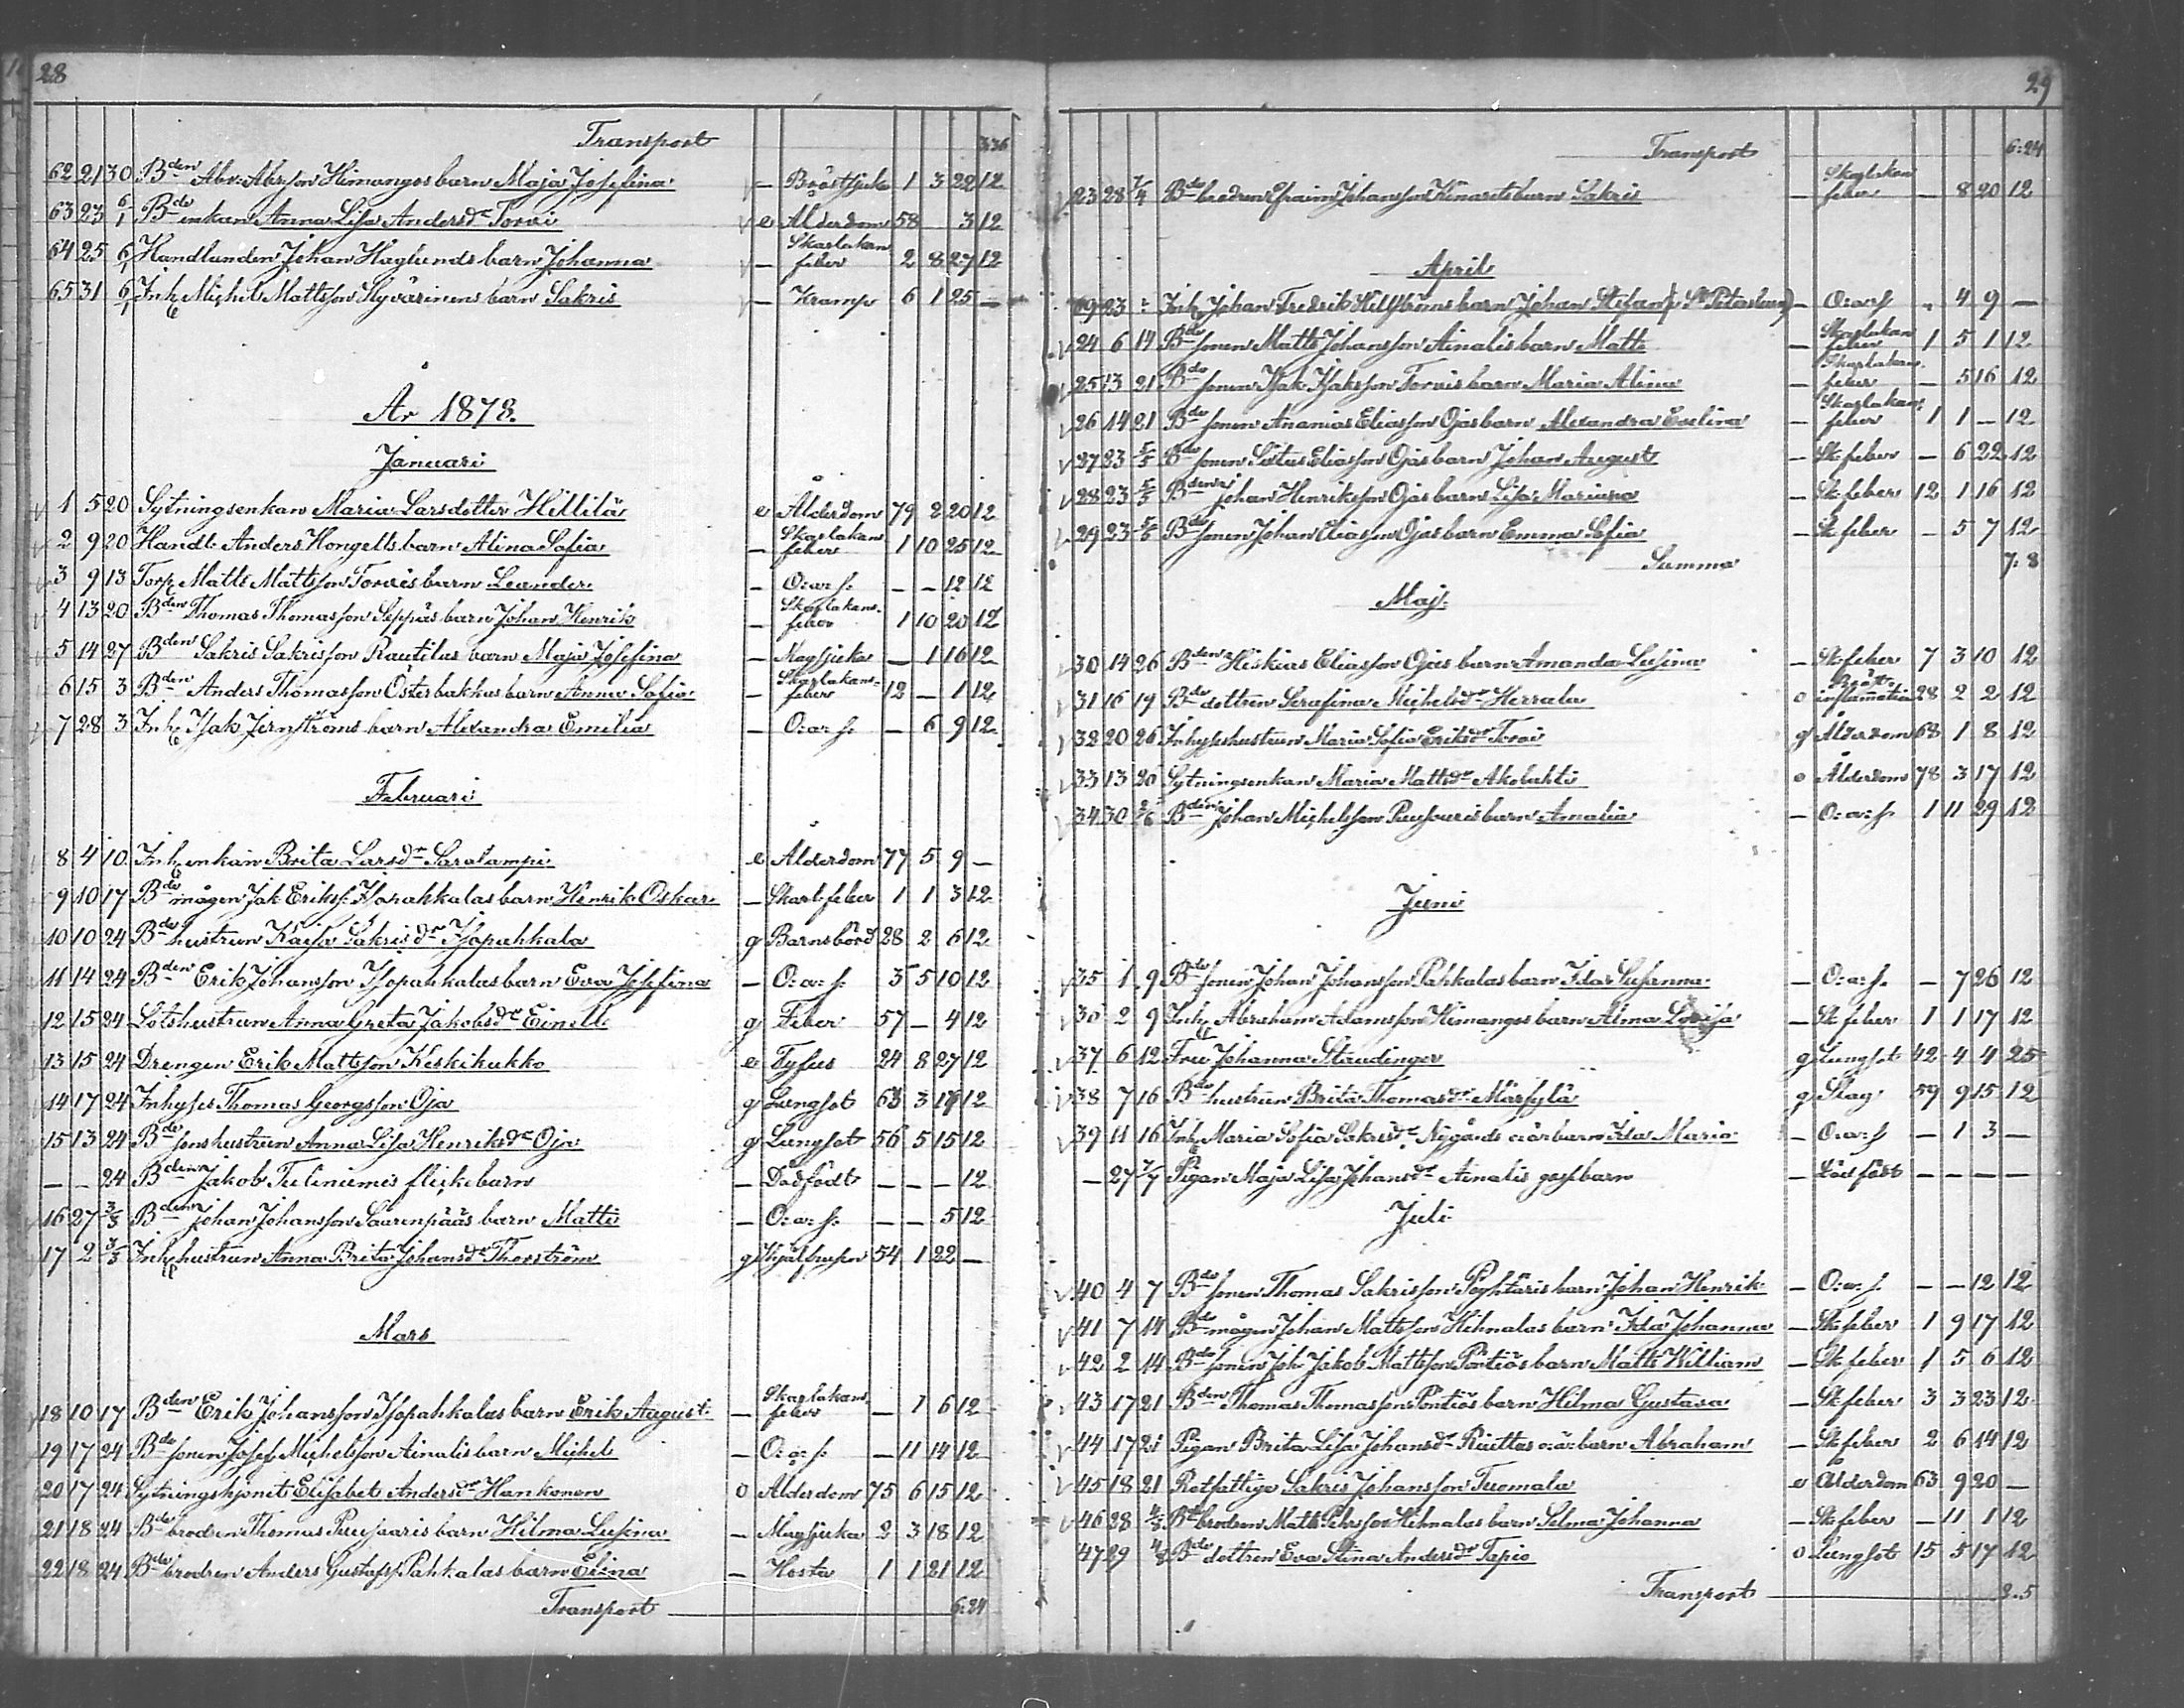 28
Transport 336
62 21 30 Bden Abr: Abrsson Himangos barn Maja Josefina – Bröstsjuka 1 3 22 12
63 23 6/1 Bde enkan Anna Lisa Andersdr Torvi e Alderdom 58 3 12
64 25 6/1 Handlanden Johan Haglunds barn Johanna – Skarlakan feber 2 8 27 12
65 31 6/1 Inh. Michel Mattsson Hyvärinens barn Sakris – Kramp 6 1 25 –
År 1878.
Januari
1 5 20 Sytningsenkan Maria Larsdotter Hillilä e Ålderdom 79 2 20 12
2 9 20 Handl: Anders Hongells barn Alina Sofia – Skarlakan feber 1 10 25 12
3 9 13 Torp. Matts Mattsson Torvis barn Leander – O:ar s. – – 12 12
4 13 20 Bden Thomas Thomasson Seppäs barn Johan Henrik – Skarlakans- feber 1 10 20 12
5 14 27 Bden Sakris Sakrisson Rautilas barn Maja Josefina – Magsjuka – 1 16 12
6 15 3 Bden Anders Thomasson Österbakkas barn Anna Sofia – Skarlakans- feber 12 – 1 12
7 28 3 Inh. Isak Jernströms barn Alexandra Emilia – O:ar s. – 6 9 12
Februari
8 4 10 Inh. enkan Brita Larsdr Saralampi e Ålderdom 77 5 9 –
9 10 17 Bde mågen Jak Eriks. Isopahkalas barn Henrik Oskar – Skarl feber 1 1 3 12
10 10 24 Bde hustrun Kaisa Sakrisdr Isopahkala g Barnsbörd 28 2 6 12
11 14 24 Bden Erik Johansson Isopahkalas barn Eva Josefina – O: ar: s. 3 5 10 12
12 15 24 Lotshustrun Anna Greta Jakobsdr Einell g Feber 57 – 4 12
13 15 24 Drengen Erik Mattsson Keskikukko e Tyfus 24 8 27 12
14 17 24 Inhyses Thomas Georgsson Oja g Lungsot 63 3 12
15 13 24 Bde sonshustrun Anna Lisa Henriksdr Oja g Lungsot 56 5 15 12
– – 24 Bden Jakob Tuliniemis flickebarn – Dödfödt – – – 12
16 27 3/3 Bden Johan Johansson Saarenpääs barn Matts – O: ar: s. – – 5 12
17 2 3/3 Inh. hustrun Anna Brita Johansdr Thorström g 54 1 22 –
Mars
18 10 17 Bden Erik Johansson Isopahkalas barn Erik August – Skarlakans feber – 1 6 12
19 17 24 Bde sonen Josef Michelsson Ainalis barn Michel – O: ar: s. – 11 14 12
20 17 24 Sytningshjonet Elisabet Andersdr Hankonen o Alderdom 75 6 15 12
21 18 24 Bde brodren Thomas Puusaaris barn Hilma Lusina – Magsjuka 2 3 18 12
22 18 24 Bde brodren Anders Gustafs. Pahkalas barn Elina – Hosta 1 1 21 12
Transport 6:24
29
Transport 6:24
23 28 7/4 Bde brodren Efraim Johansson Kinarets barn Sakris – Skarlakan feber – 8 20 12
April
23 Inh. Johan Fredrik Hellströms barn Johan Stefan (S:t Petersburg) – O:ar: s – 4 9 –
24 6 14 Bde sonen Matts Johansson Ainalis barn Matts – Skarlakan feber 1 5 1 12
25 13 21 Bde sonen Isak Isaksson Torvis barn Maria Alina – Skarlakan. feber – 5 16 12
26 14 21 Bde sonen Ananias Eliasson Ojas barn Alexandra Evelina – Skarlakan feber 1 1 – 12
27 23 5/5 Bde sonen Sixtus Eliasson Ojas barn Johan August – Sk: feber – 6 22 12
28 23 5/5 Bden Johan Henriksson Ojas barn Lisa Mariana – Sk: feber 12 1 16 12
29 23 5/5 Bde sonen Johan Eliasson Ojas barn Emma Sofia – Sk feber – 5 7 12
Summa 7: 8
Maj.
30 14 26 Bden Heskias Eliasson Ojas barn Amanda Lusina – Sk: feber 7 3 10 12
31 16 19 Bde dottren Serafina Michelsdr Herrala o Bröst- inflammation 28 2 2 12
32 20 26 Inhyseshustrun Maria Sofia Eriksdr Torvi g Ålderdom 68 1 8 12
33 13 26 Sytningsenkan Maria Mattsdr Akolahti e Ålderdom 78 3 17 12
34 30 2/6 Bden Johan Michelsson Puusaaris barn Amalia – O: ar: s. 1 11 29 12
Juni
35 1 9 Bde sonen Johan Johansson Pahkalas barn Ida Susanna – O: ar: s. – 7 26 12
36 2 9 Inh. Abraham Adamsson Himangos barn Alma Lovisa – Sk feber 1 1 17 12
37 6 12 Fru Johanna Staudinger g Lungsot 42 4 4 25
38 7 16 Bde hustrun Brita Thomasdr Märsylä g Slag 59 9 15 12
39 11 16 Inh. Maria Sofia Sakrisdr Nygårds o:ä: barn Ida Maria – O: ar: s – 1 3 –
– 27 7/7 Pigan Maja Lisa Johansdr Ainalis gossbarn – Dödfödt – – – –
Juli
40 4 7 Bde sonen Thomas Sakrisson Pöyhtäris barn Johan Henrik – O: ar: s. – – 12 12
41 7 14 Bde mågen Johan Mattsson Hihnalas barn Ida Johanna – Sk feber 1 9 17 12
42 2 14 Bde sonen Joh Jakob Mattsson Pontiös barn Matts William – Sk feber 1 5 6 12
43 17 21 Bden Thomas Thomasson Pontiös barn Hilma Gustava – Sk feber 3 3 23 12
44 17 21 Pigan Brita Lisa Johansdr Riuttas o:ä: barn Abraham – Sk feber 2 6 14 12
45 18 21 Rotfattige Sakris Johansson Tuomala e Alderdom 63 9 20 –
46 28 4/8 Bde brodren Matts Pehrsson Hihnalas barn Selma Johanna – Sk feber – 11 1 12
47 29 4/8 Bde dottren Eva Stina Andersdr Tapio o Lungsot 15 5 17 12
Transport 8.5